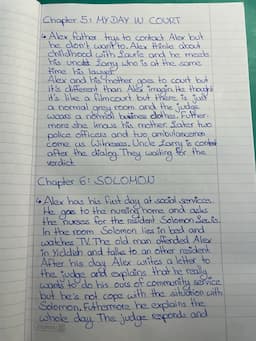 Chapter 5: MY DAY IN COURT
↳ Alex father trys to contact Alex but
he don't want to. Alex thinks about
childhood with Laurie and he meets
his uncle Larry who is at the same
time his lawyer.
Alex and his mother goes to court but
it's different than Alex imagin. He thought
it's like a filmcourt but there is just
a normal grey room and the judge
wears a normal business clothes. Futher-
more she knows his mother. Later two
police officers and two ambulancemen
come as Witnesses. Uncle Larry is content
after the dialog. They waiting for the
verdict.
Chapter 6: SOLOMON
↳ Alex has his first day at social services.
He goes to the nursing home and asks
the nurses for the resident Solomon Lewis.
In the room Solomon lies in bed and
watches TV. The old man offended Alex
in Yiddish and talks to an other resident.
After his day Alex writes a letter to
the judge and explains that he really
wants to do his ours of community service
but he's not cope with the situation with
Solomon. Futhermore he explains the
whole day. The judge responds and